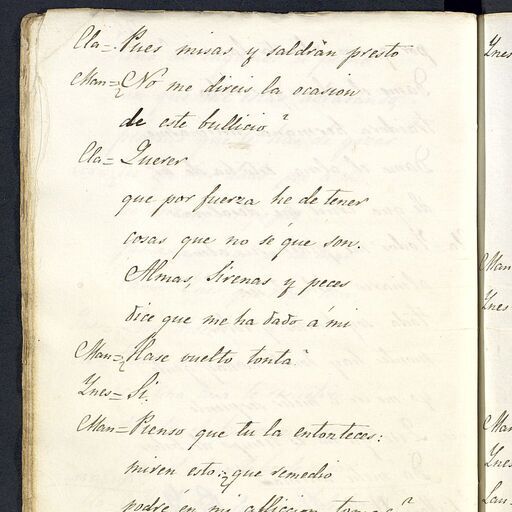 Cla= Pues misas y saldrán presto
Man=¿No me direis la ocasion
de este bullicio?
Cla= Querer
que por fuerza he de tener
cosas que no sé que son.
Almas, Sirenas y peces
dice que me ha dado á mi
Man=¿Hase vuelto tonta?
Ynes= Si.
Man= Pienso que tu la entonteces:
miren esto: ¿que remedio
podré en mi afliccion
Ynes
Man
Ynes
Man
Ynes
Lau